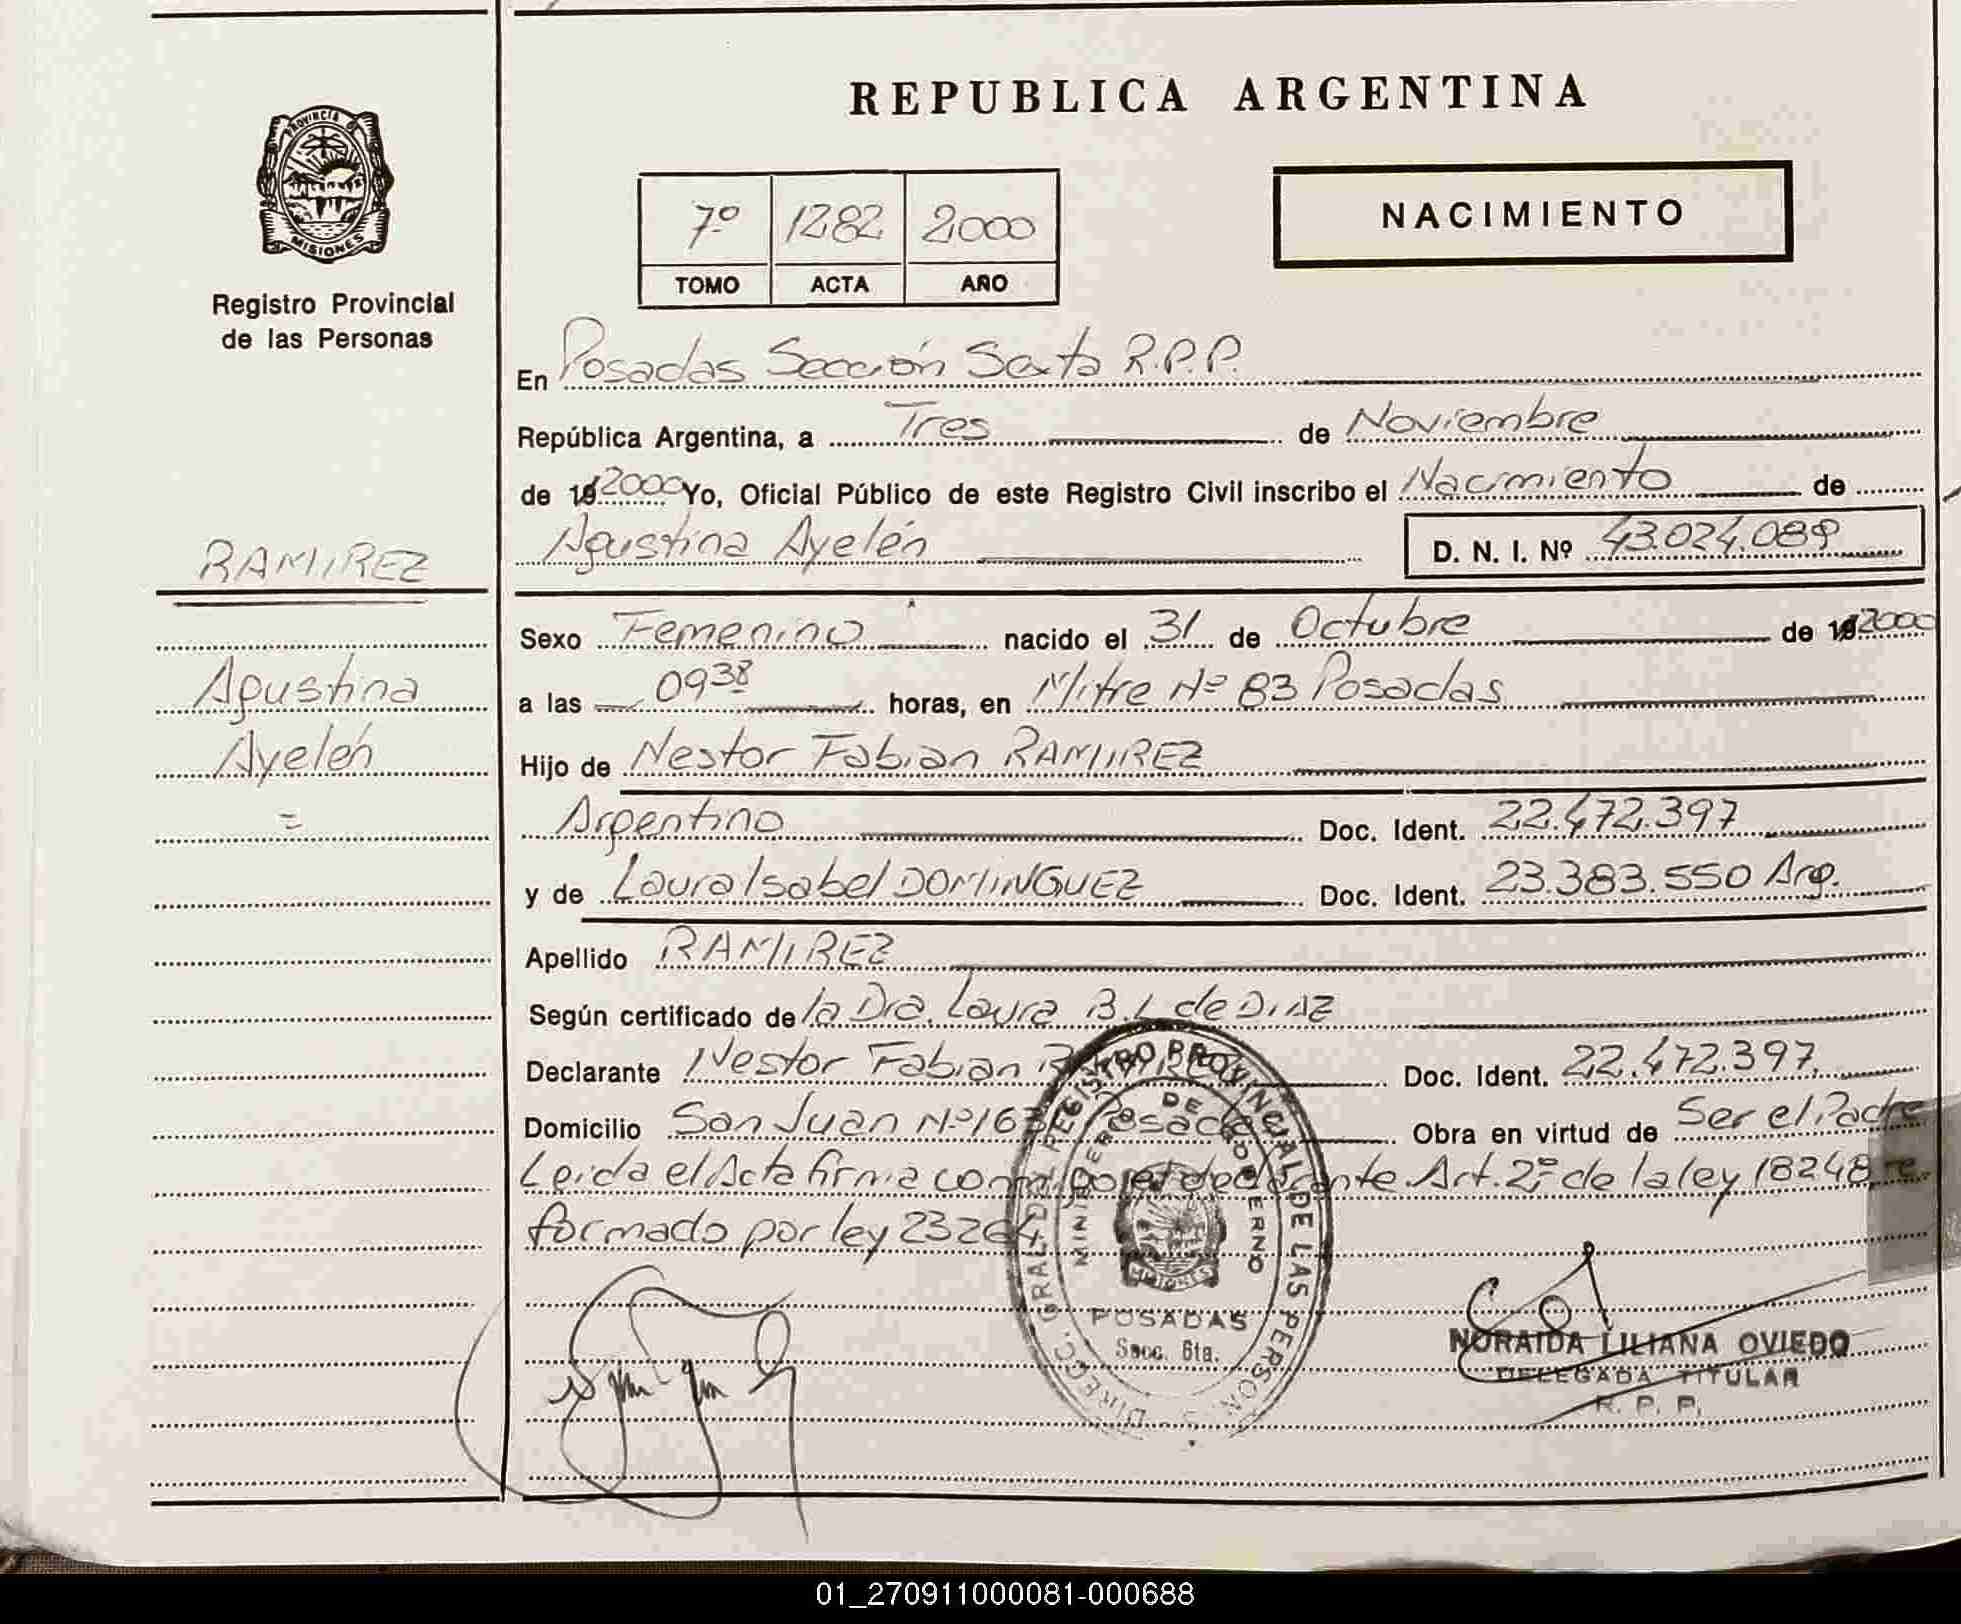 REPUBLICA ARGENTINA
PROVINCIA DE
MISIONES
Registro Provincial
de las Personas
7º 1282 2000
TOMO ACTA AÑO
NACIMIENTO
En Posadas Sección Sexta R.P.P.
República Argentina, a Tres de Noviembre
de 19 2000 Yo, Oficial Público de este Registro Civil inscribo el Nacimiento de
Agustina Ayelén D. N. I. Nº 43.024.089
RAMIREZ
Agustina
Ayelén
=
Sexo Femenino nacido el 31 de Octubre de 19 2000
a las 09 38 horas, en Mitre Nº 83 Posadas
Hijo de Nestor Fabian RAMIREZ
Argentino Doc. Ident. 22.472.397
y de Laura Isabel DOMINGUEZ Doc. Ident. 23.383.550 Arg.
Apellido RAMIREZ
Según certificado de la Dra. Laura B. L de DIAZ
Declarante Nestor Fabian RAMIREZ Doc. Ident. 22.472.397.
Domicilio San Juan Nº 163 Posadas Obra en virtud de Ser el Padre
Leida el Acta firma conmigo el declarante. Art. 2º de la ley 18248 re
formado por ley 23264
DIRECC. GRAL. DEL REGISTRO PROVINCIAL DE LAS PERSONAS
MINISTERIO DE GOBIERNO
MISIONES
POSADAS
Secc. 6ta.
NORAIDA LILIANA OVIEDO
DELEGADA TITULAR
R. P. P.
01_270911000081-000688